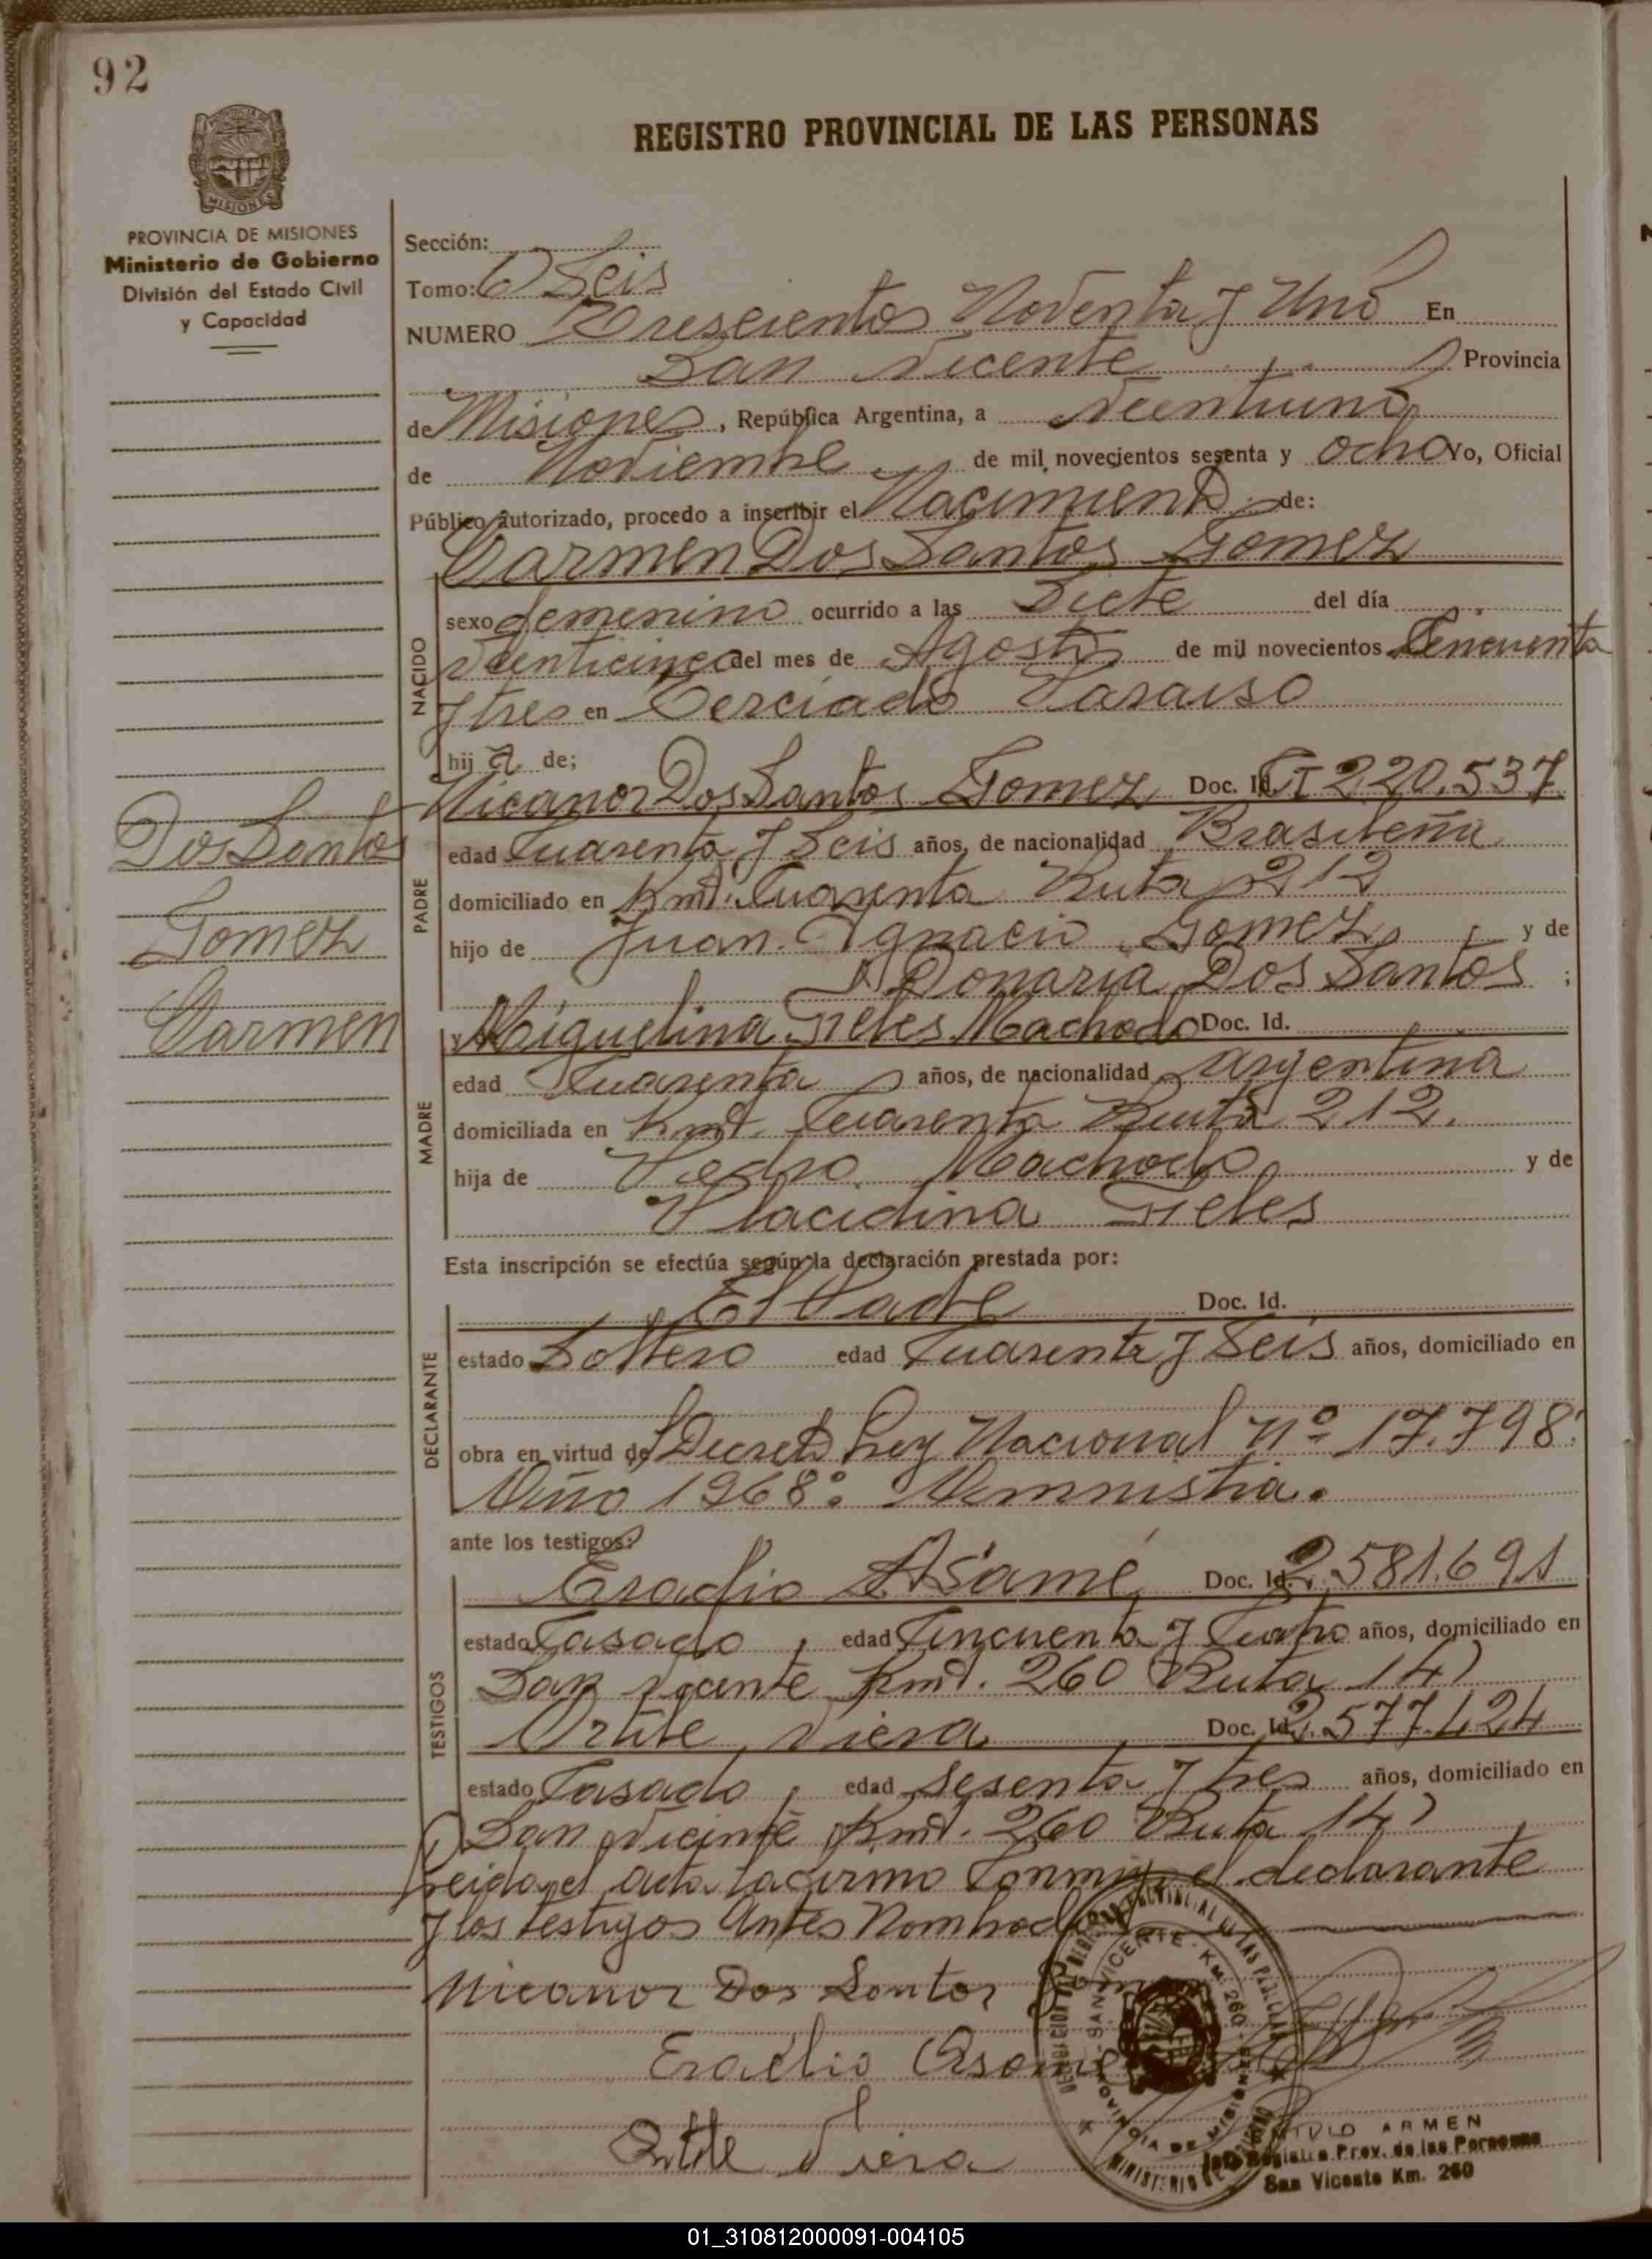 92
REGISTRO PROVINCIAL DE LAS PERSONAS
MISIONES
PROVINCIA DE MISIONES
Ministerio de Gobierno
División del Estado Civil
y Capacidad
Sección:
Tomo: 6 Seis
NUMERO Trescientos Noventa y Uno En
San Vicente Provincia
de Misiones, República Argentina, a Veintiuno
de Noviembre de mil novecientos sesenta y ocho Yo, Oficial
Público autorizado, procedo a inscribir el Nacimiento de:
Carmen Dos Santos Gomez
NACIDO
sexo femenino ocurrido a las Siete del día
Veinticinco del mes de Agosto de mil novecientos Cincuenta
y tres en Terciado Paraiso
hija de;
PADRE
Nicanor Dos Santos Gomez Doc. Id. CI 220.537
edad Cuarenta y Seis años, de nacionalidad Brasileña
domiciliado en Kmt. Cuarenta Ruta 212
hijo de Juan Ignacio Gomez y de
Donaria Dos Santos ;
Dos Santos
Gomez
Carmen
MADRE
y Miguelina Teles Machado Doc. Id.
edad Cuarenta años, de nacionalidad argentina
domiciliada en Kmt. Cuarenta Ruta 212.
hija de Pedro Machado y de
Placidina Teles
Esta inscripción se efectúa según la declaración prestada por:
DECLARANTE
El Padre Doc. Id.
estado Soltero edad Cuarenta y Seis años, domiciliado en
obra en virtud de Decreto Ley Nacional Nº 17.798.
Año 1968: Amnistia.
ante los testigos:
TESTIGOS
Eradio Asamé Doc. Id. 2.581.691
estado Casado, edad Cincuenta y Cuatro años, domiciliado en
San Vicente Kmt. 260 Ruta 14)
Ortile Viera Doc. Id. 2.577.424
estado Casado, edad Sesenta y tres años, domiciliado en
San Vicente Kmt. 260 Ruta 14)
Leida el acta la firmo Conmigo el declarante
y los testigos Antes Nombrados
Nicanor Dos Santos
Eradio Asame
Ortile Viera
SAN VICENTE - KM. 260
PROVINCIA DE MISIONES
ARMEN
Registro Prov. de las Personas
San Vicente Km. 260
01_310812000091-004105